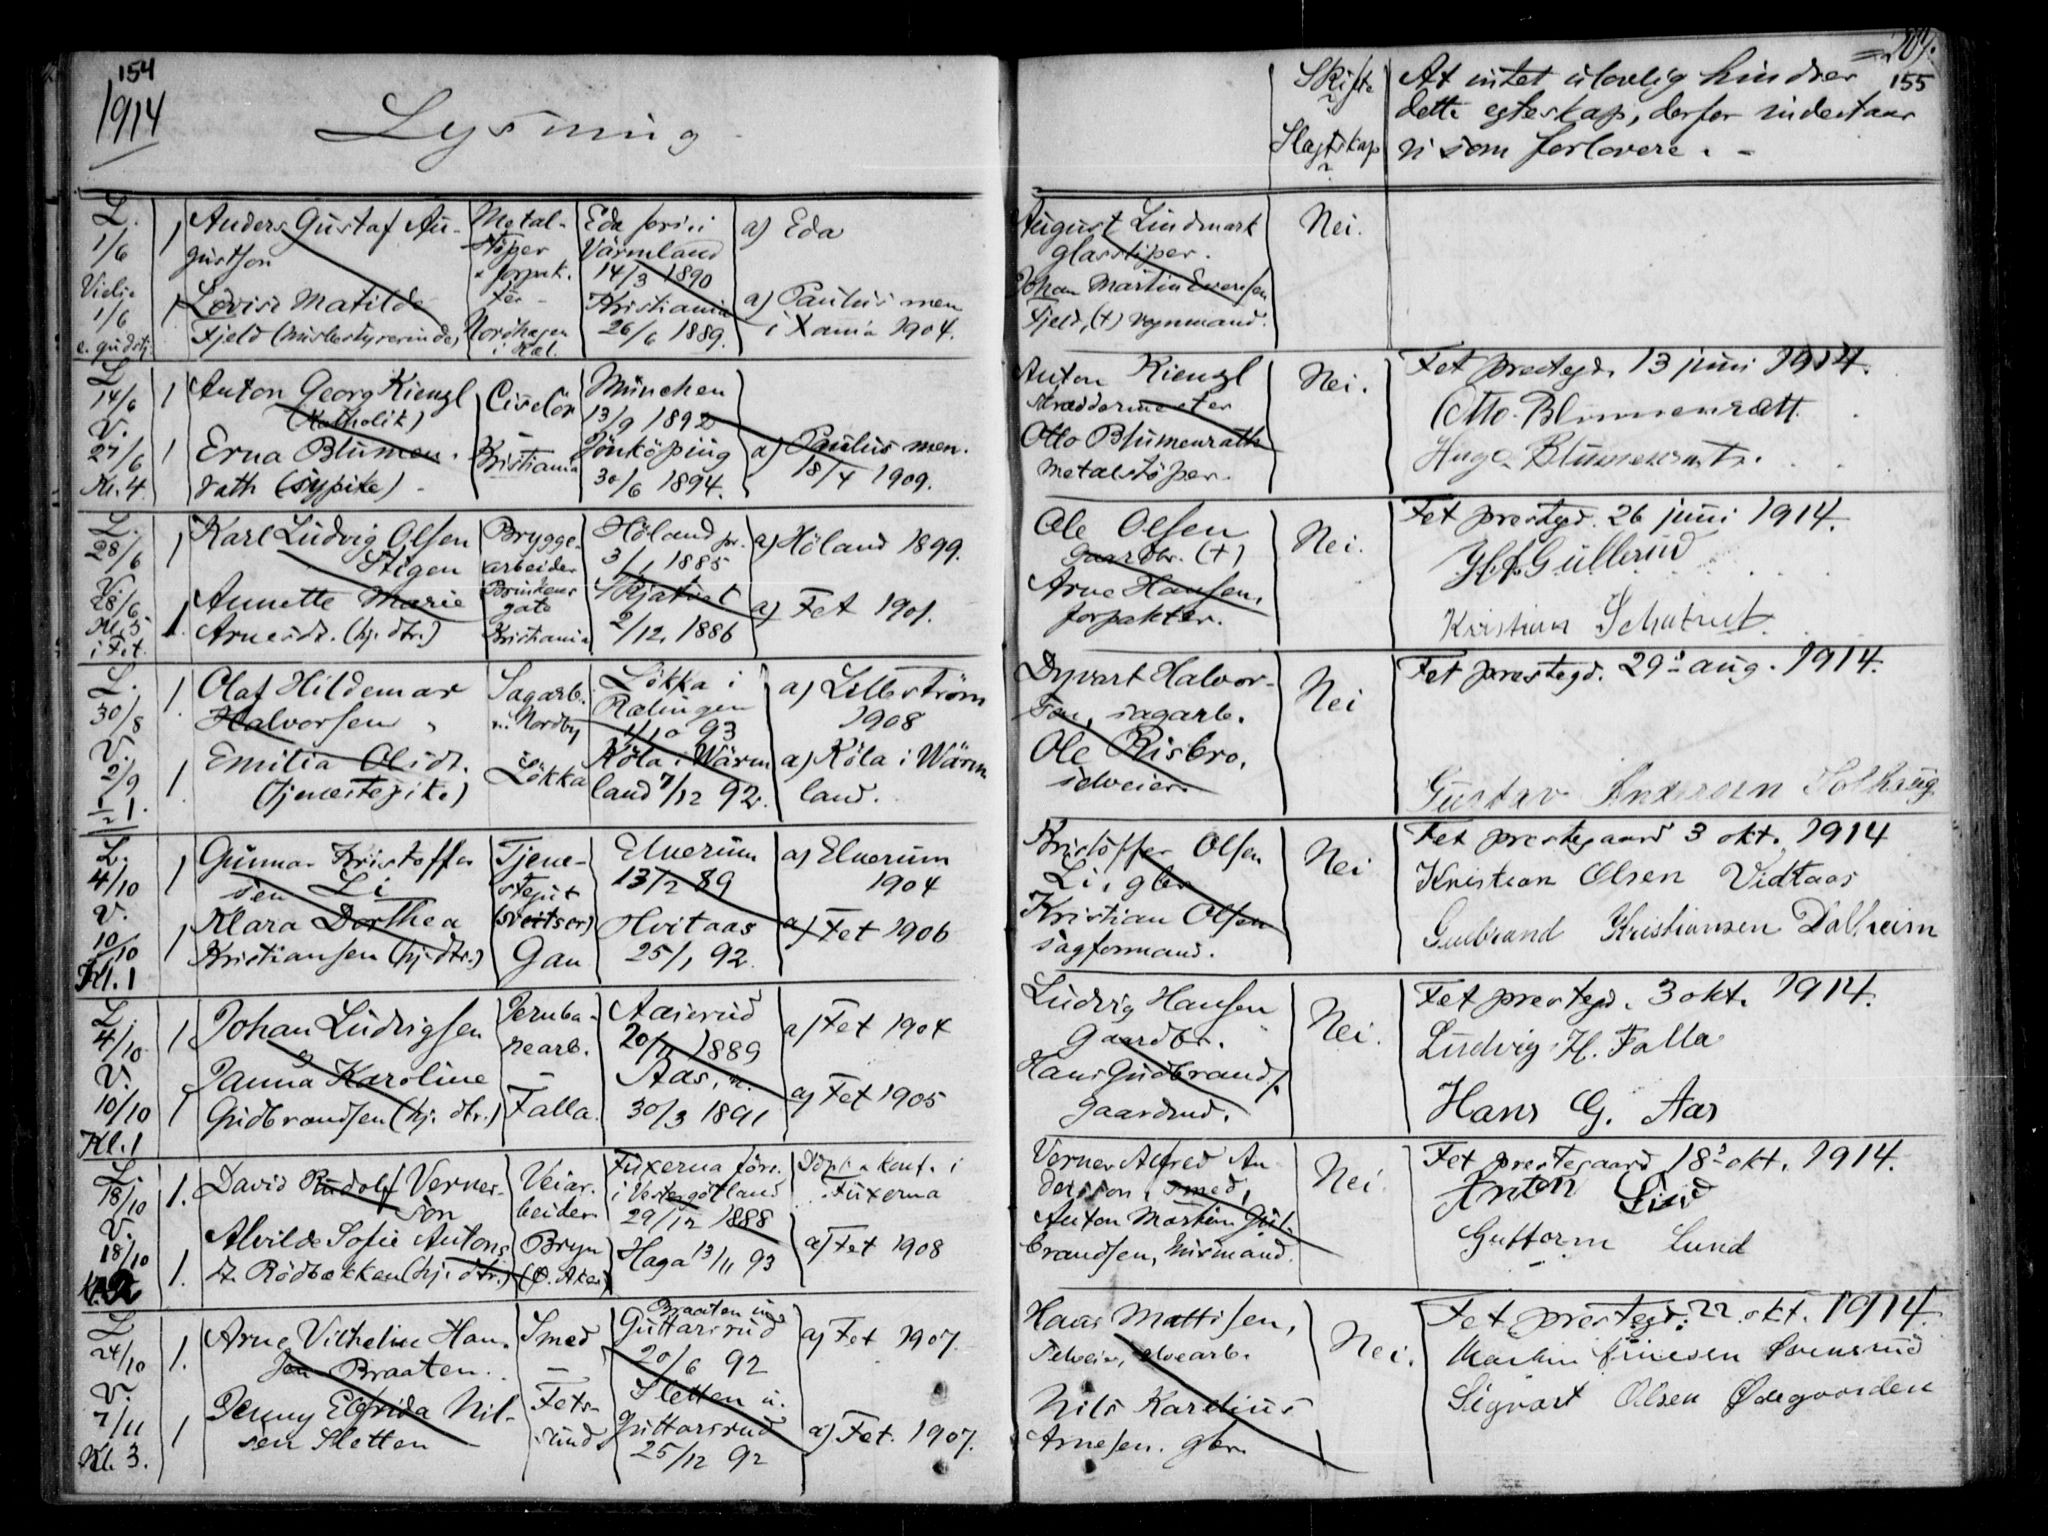 154
1914
Lysning
L.
1/6
Vielse
1/6
e. gudstj.
1
1
Anders Gustaf Au-
gustson
Lovise Matilde
Fjeld (husbestyrerinde)
Metal-
støper
Nordhagen
i Høl.
Eda fors. i
Värmland
14/3 1890
Kristiania
26/6 1889.
a) Eda
a) Paulus men
i Xania 1904.
L
14/6
V.
27/6
Kl. 4
1
1
Anton Georg Kienzl
(Katholik)
Erna Blumen-
rath (sypike)
Ciselör
–
Kristiania
München
13/9 1892
Jönköping
30/6 1894.
a) Paulus men.
18/4 1909.
L.
28/6
V.
28/6
Kl. 5
i Fet.
1
1.
Karl Ludvig Olsen
Stigen
Annette Marie
Arnesdr. (hj. dtr.)
Brygge-
arbeider
Brinkens
gate
Kristiania
Höland pr.
3/1 1885
Skjatvet
2/12. 1886
a) Höland 1899.
a) Fet 1901.
L.
30/8
V.
2/9
1/2 1.
1.
1.
Olaf Hildemar
Halvorsen
Emilia Olsdr.
(tjenestepike)
Sagarb.
n. Nordby
Lökka
Lökka i
Rælingen
1/10 93
Köla i Wärm
land 7/12 92.
a) Lilleström
1908
a) Köla i Wärm
land.
L.
4/10
V.
10/10
Kl. 1
1
1
Gunnar Kristoffer
sen Li
Klara Dorthea
Kristiansen (hj. dtr.)
Tjene-
stegut
(sveitser)
Gan
Elverum
13/2 89
Hvitaas
25/1 92.
a) Elverum
1904
a) Fet 1906
L.
4/10
V.
10/10
Kl. 1
1
1
Johan Ludvigsen
Janna Karoline
Gudbrandsen (hj. dtr.)
Jernba-
nearb.
–
Falla.
Aaserud
20/11 1889
Aas, n.
30/3 1891
a) Fet 1904
a) Fet 1905
L.
18/10
V.
18/10
1.
1.
David Rudolf Verner-
son
Alvilde Sofie Antons
dr. Rödbækken (hj. dtr.)
Veiar-
beider
Bryn
(Ö. Aker)
Fuxerna förs.
i Vestergötland
29/12 1888
Haga 13/11 93
Döpt o konf. i
Fuxerna
a) Fet 1908
L
24/10
V.
7/11
Kl. 3.
1.
1
Arne Vilhelm Han-
sen Braaten.
Jenny Elfrida Nil-
sen Sletten
Smed
–
Fets-
sund
Braaten und
Guttarsrud
20/6 92
Sletten u.
Guttarsrud
25/12 92
a) Fet 1907.
a) Fet. 1907.
209.
155
Skifte
?
Slagtskap
?
At intet ulovlig hindrer
dette egteskap, derfor indestaar
vi som forlovere. –
August Lindmark
glassliper.
Johan Martin Evensen
Fjeld, (+) vognmand.
Nei.
Anton Kienzl
skræddermester
Otto Blumenrath
metalstöper.
Nei.
Fet prestegd. 13 juni 1914.
Otto Blumenrath.
Hugo Blumenrath.
Ole Olsen
gaardbr. (+)
Arne Hansen,
forpakter.
Nei.
Fet prestegd. 26 juni 1914.
Gullerud
Kristian
Dyvart Halvor-
sen, sagarb.
Ole Risbro,
selveier.
Nei
Fet prestegd. 29de aug. 1914.
Gustav Anderson Solhaug
Kristoffer Olsen
Li, gbr
Kristian Olsen
sagformand.
Nei
Fet prestegaard 3 okt. 1914
Kristian Olsen Vidtaas
Gudbrand Kristiansen Dalheim
Ludvig Hansen
Gaardbr.
Hans Gudbrands.
gaardmd.
Nei.
Fet prestegd. 3 okt. 1914.
Ludvig H. Falla
Hans G. Aas
Verner Alfred An-
dersson, smed,
Anton Martin Gul-
brandsen, husmand.
Nei
Fet prestegaard 18de okt. 1914.
Anton Lund
Guttorm Lund
Hans Mattisen,
selveier, elvearb.
Nils Karelius
Arnesen. gbr.
Nei.
Fet prestegd. 22. okt. 1914.
Martin
Sigvart Olsen Ødegaarden